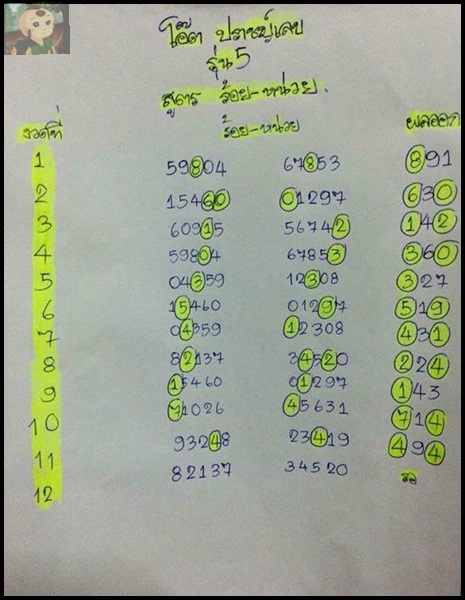 โอ๊ต ปราชญ์เลข
รุ่น 5
สูตร ร้อย-หน่วย.
งวดที่ ร้อย-หน่วย ผลออก
1 59804 67853 891
2 15460 01297 630
3 60915 56742 142
4 59804 67853 360
5 04359 12308 327
6 15460 01297 519
7 04359 12308 431
8 82137 34520 224
9 15460 01297 143
10 71026 45631 714
11 93248 23419 494
12 82137 34520 รอ